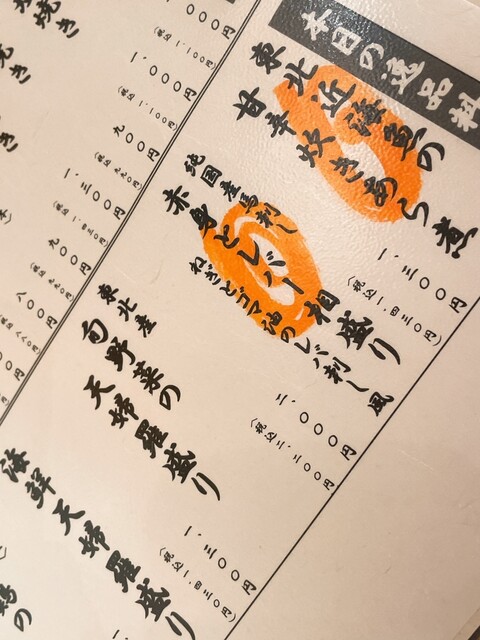 本日の逸品料
東北近海魚の
甘辛炊きあら煮
一、三〇〇円
(税込一、四三〇円)
純国産馬刺し
赤身とレバー相盛り
ねぎとゴマ油のレバ刺し風
二、〇〇〇円
(税込二、二〇〇円)
東北産
旬野菜の
天婦羅盛り
一、三〇〇円
(税込一、四三〇円)
海鮮天婦羅盛り
一、〇〇〇円
(税込一、一〇〇円)
一、〇〇〇円
(税込一、一〇〇円)
九〇〇円
(税込九九〇円)
一、三〇〇円
(税込一、四三〇円)
九〇〇円
(税込九九〇円)
八〇〇円
(税込八八〇円)